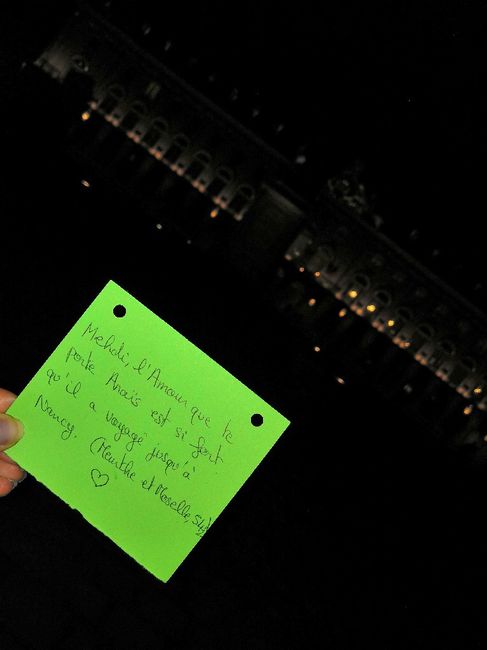 Mehdi, l'Amour que te
porte Anaïs est si fort
qu'il a voyagé jusqu'à
Nancy. (Meurthe et Moselle, 54)